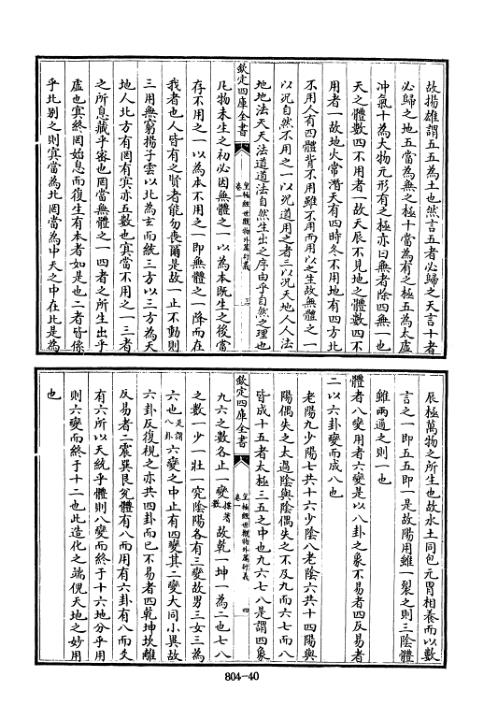 故揚雄謂五五為土也然言五者必歸之天言十者
必歸之地五當為無之極十當為有之極五為太虛
冲氣十為大物元形有之極亦曰無者除四無一也
天之體數四不用者一故天辰不見地之體數四不
用者一故地火常潛天有四時冬不用地有四方北
不用人有四體背不用雖不用而用以之生故無體之一
以况自然不用之一以况道用之者三以况天地人人法
地地法天天法道道法自然生出之序由乎自然之理也
欽定四庫全書
皇極經世觀物外篇衍義
卷一
三
凡物未生之初必因無體之一以為本既生之後當
存不用之一以為本不用之一即無體之一降而在
我者也人皆有之賢者能勿喪爾是故一止不動則
三用無窮揚子雲以北為玄而統三方以三方為天
地人北方有罔有冥亦五數也冥當不用之一三者
之所息藏乎密也罔當無體之一四者之所生出乎
虛也冥終罔始息而復生有本者如是也二者皆係
乎北别之則冥當為北罔當為中天之中在北是為
辰極萬物之所生也故水土同包元胃相養而以數
言之一即五五即一是故陽用雖一裂之則三陰體
雖兩通之則一也
體者八變用者六變是以八卦之象不易者四反易者
二以六卦變而成八也
老陽九少陽七共十六少陰八老陰六共十四陽與
陽偶失之太過陰與陰偶失之不及九而六七而八
皆成十五者太極三五之中也九六七八是謂四象
欽定四庫全書
皇極經世觀物外篇衍義
卷一
四
九六之數各止一變揲蓍數故乾一坤一為二也七八
之數一少一壯一究陰陽各有三變故男三女三為
六也是謂八卦六變之中止有四變其二變大同小異故
六卦反復視之亦共四卦而已不易者四乾坤坎離
反易者二震巽艮兌體有八而用有六卦有八而爻
有六所以天統乎體則八變而終於十六地分乎用
則六變而終于十二也此造化之端倪天地之妙用
也
804-40